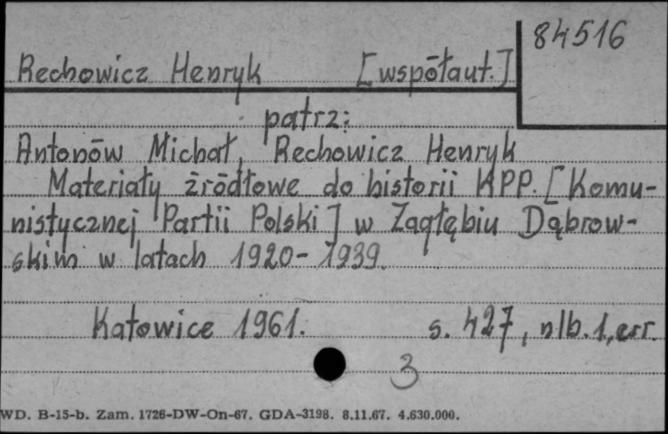 84516
Rechowicz Henryk [współaut.]
patrz:
Antonów Michał, Rechowicz Henryk
Materiały źródłowe do historii KPP. [Komu-
nistycznej Partii Polski] w Zagłębiu Dąbrow-
skim w latach 1920-1939.
Katowice 1961. s. 427, nlb. 1, err.
3
WD. B-15-b. Zam. 1726-DW-On-67. GDA-3198. 8.11.67. 4.630.000.